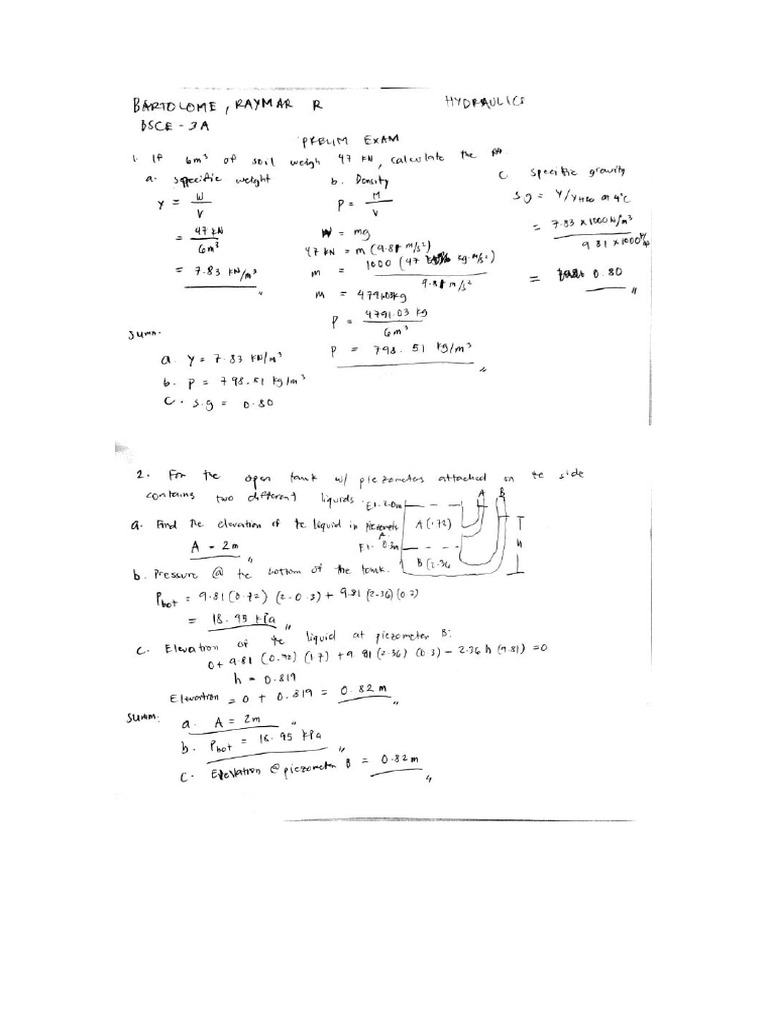 BARTOLOME, RAYMAR R HYDRAULICS
BSCE - 3A
PRELIM EXAM
1. If 6m³ of soil weigh 47 KN, calculate the
a. specific weight
γ = W/V
= 47 KN / 6m³
= 7.83 KN/m³
b. Density
ρ = M/V
W = mg
47 KN = m (9.81 m/s²)
m = 1000 (47 kg·m/s²) / 9.81 m/s²
m = 4791.03kg
ρ = 4791.03 kg / 6m³
ρ = 798.51 kg/m³
c. specific gravity
s g = γ/γH2O @ 4°C
= 7.83 x 1000 N/m³ / 9.81 x 1000
= 0.80
summ.
a. γ = 7.83 KN/m³
b. ρ = 798.51 kg/m³
c. s.g = 0.80
2. For the open tank w/ piezometers attached on the side
contains two different liquids.
a. Find the elevation of the liquid in piezometer A.
A = 2m
El. 2.0m
El. 0.3m
A B
A (.72)
B (2.36
h
b. Pressure @ the bottom of the tank.
Pbot = 9.81 (0.72) (2-0.3) + 9.81 (2.36) (0.3)
= 18.95 kPa
c. Elevation of the liquid at piezometer B:
0 + 9.81 (0.72) (1.7) + 9.81 (2.36) (0.3) - 2.36 h (9.81) = 0
h = 0.819
Elevation = 0 + 0.819 = 0.82 m
summ:
a. A = 2m
b. Pbot = 18.95 kPa
c. Elevation @ piezometer B = 0.82m